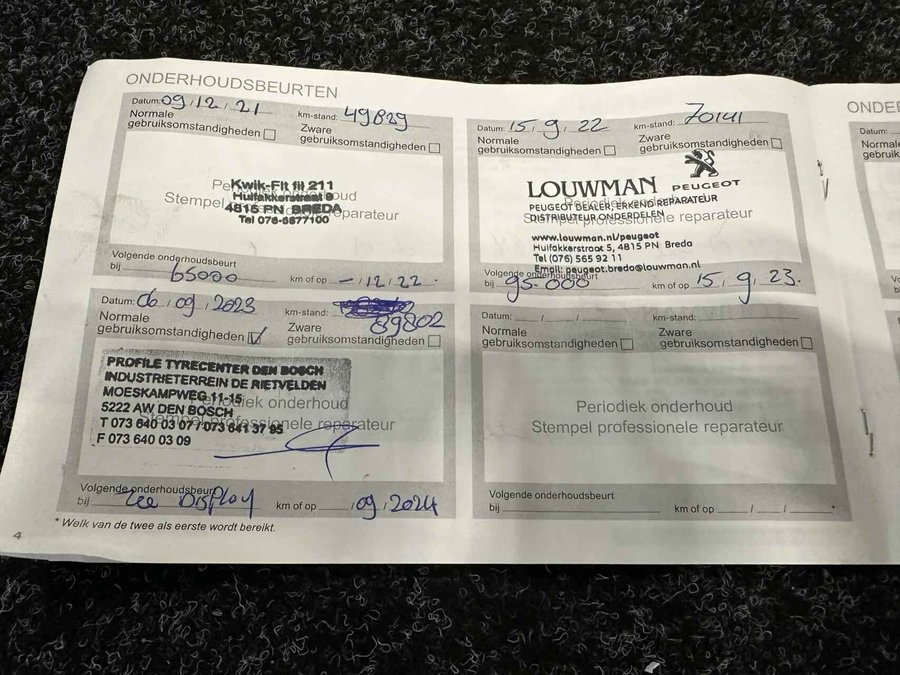 ONDERHOUDSBEURTEN
Datum: 09 / 12 / 21 km-stand: 49829
Normale gebruiksomstandigheden
Zware gebruiksomstandigheden
Periodiek onderhoud
Stempel professionele reparateur
Kwik-Fit fil 211
Huifakkerstraat 9
4815 PN BREDA
Tel 076-5877100
Volgende onderhoudsbeurt
bij 65000 km of op - / 12 / 22.
Datum: 15 / 9 / 22 km-stand: 70141
Normale gebruiksomstandigheden
Zware gebruiksomstandigheden
Periodiek onderhoud
Stempel professionele reparateur
LOUWMAN PEUGEOT
PEUGEOT DEALER, ERKEND REPARATEUR
DISTRIBUTEUR ONDERDELEN
www.louwman.nl/peugeot
Huifakkerstroot 5, 4815 PN Breda
Tel (076) 565 92 11
Email: peugeot.breda@louwman.nl
Volgende onderhoudsbeurt
bij 95.000 km of op 15 / 9 / 23.
Datum: 06 / 09 / 2023 km-stand:
89802
Normale gebruiksomstandigheden
Zware gebruiksomstandigheden
Periodiek onderhoud
Stempel professionele reparateur
PROFILE TYRECENTER DEN BOSCH
INDUSTRIETERREIN DE RIETVELDEN
MOESKAMPWEG 11-15
5222 AW DEN BOSCH
T 073 640 03 07 / 073 641 37 85
F 073 640 03 09
Volgende onderhoudsbeurt
bij Zee DISPlay km of op / 09 / 2024
Datum: / / km-stand:
Normale gebruiksomstandigheden
Zware gebruiksomstandigheden
Periodiek onderhoud
Stempel professionele reparateur
Volgende onderhoudsbeurt
bij km of op / / .
* Welk van de twee als eerste wordt bereikt.
4
ONDER
Datum:
Normale
gebruiks